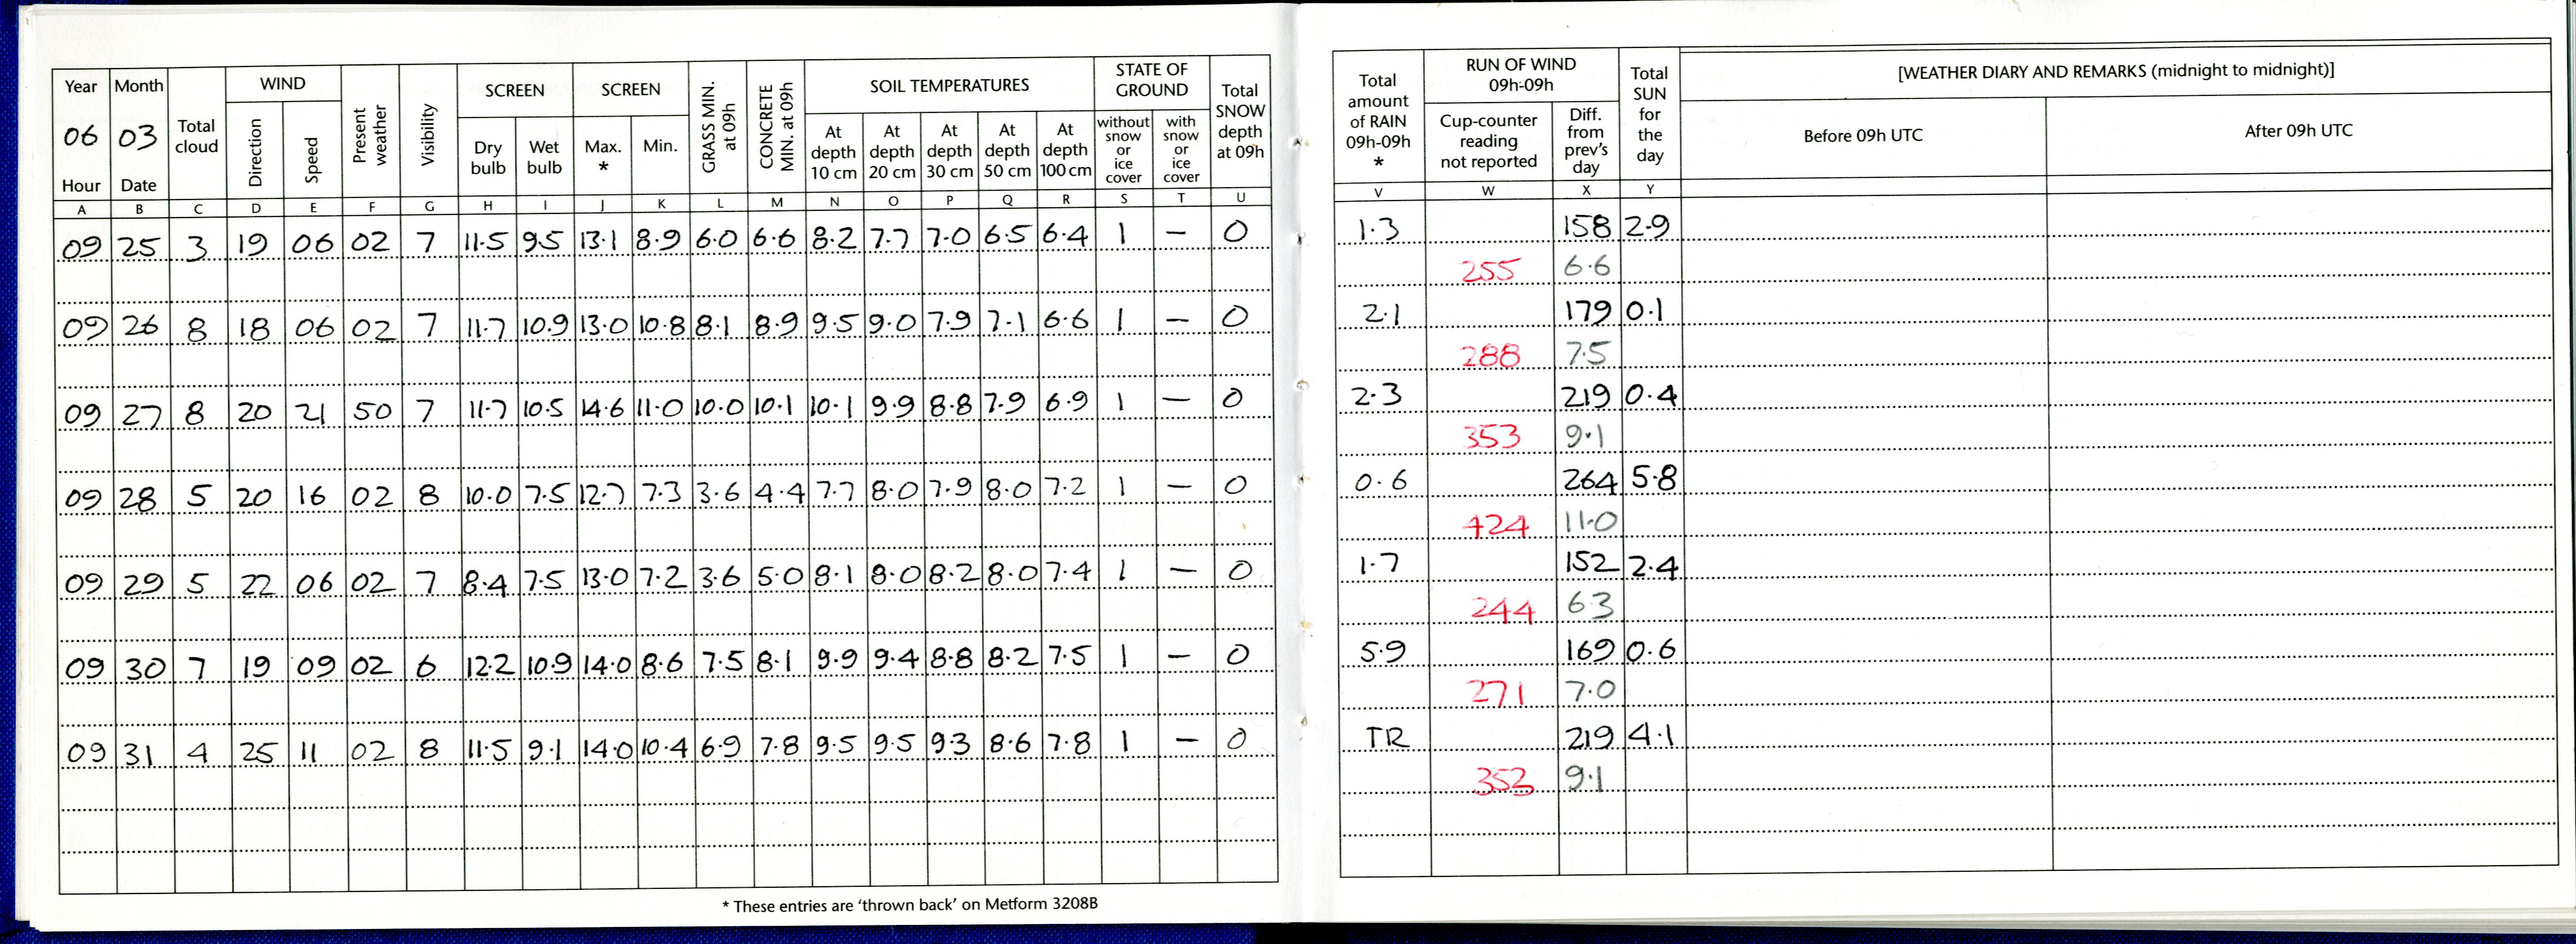 Year Month Total cloud WIND Present weather Visibility SCREEN SCREEN GRASS MIN. at 09h CONCRETE MIN. at 09h SOIL TEMPERATURES STATE OF GROUND Total SNOW depth at 09h
06 03 Direction Speed Dry bulb Wet bulb Max. * Min. At depth 10 cm At depth 20 cm At depth 30 cm At depth 50 cm At depth 100 cm without snow or ice cover with snow or ice cover
Hour Date
A B C D E F G H I J K L M N O P Q R S T U
09 25 3 19 06 02 7 11.5 9.5 13.1 8.9 6.0 6.6 8.2 7.7 7.0 6.5 6.4 1 — 0
09 26 8 18 06 02 7 11.7 10.9 13.0 10.8 8.1 8.9 9.5 9.0 7.9 7.1 6.6 1 — 0
09 27 8 20 21 50 7 11.7 10.5 14.6 11.0 10.0 10.1 10.1 9.9 8.8 7.9 6.9 1 — 0
09 28 5 20 16 02 8 10.0 7.5 12.7 7.3 3.6 4.4 7.7 8.0 7.9 8.0 7.2 1 — 0
09 29 5 22 06 02 7 8.4 7.5 13.0 7.2 3.6 5.0 8.1 8.0 8.2 8.0 7.4 1 — 0
09 30 7 19 09 02 6 12.2 10.9 14.0 8.6 7.5 8.1 9.9 9.4 8.8 8.2 7.5 1 — 0
09 31 4 25 11 02 8 11.5 9.1 14.0 10.4 6.9 7.8 9.5 9.5 9.3 8.6 7.8 1 — 0
* These entries are ‘thrown back’ on Metform 3208B
Total amount of RAIN 09h-09h * RUN OF WIND 09h-09h Total SUN for the day [WEATHER DIARY AND REMARKS (midnight to midnight)]
Cup-counter reading not reported Diff. from prev's day Before 09h UTC After 09h UTC
V W X Y
1.3 158 2.9
255 6.6
2.1 179 0.1
288 7.5
2.3 219 0.4
353 9.1
0.6 264 5.8
424 11.0
1.7 152 2.4
244 6.3
5.9 169 0.6
271 7.0
TR 219 4.1
352 9.1